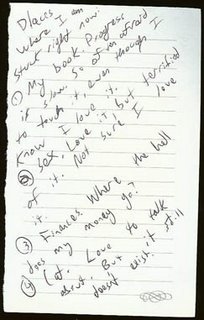 Places I am
stuck right now:
① My book. Progress
is slow. So afraid
to touch it, even though I
know I love it.
② Let. Love it but terrified
of it. Not sure I love
it.
③ Finances. Where the hell
does my money go?
④ Let. Love to talk
about. But it still
doesn't exist.